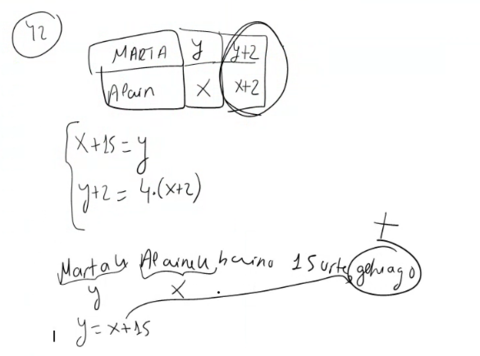 42
MARTA y y+2
Alain x x+2
x+15=y
y+2=4·(x+2)
+
Martak Alainek baino 15 urte gehiago
y x
y=x+15